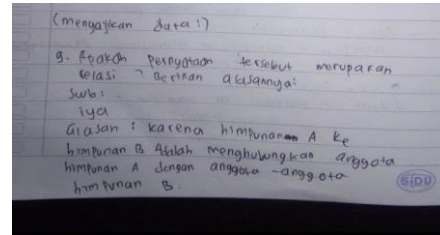 (menyajikan data!)
9. Apakah pernyataan tersebut merupakan
relasi ? Berikan alasannya:
Jwb:
iya
alasan : karena himpunan A ke
himpunan B Adalah menghubungkan anggota
himpunan A dengan anggota-anggota
himpunan B.
SiDU